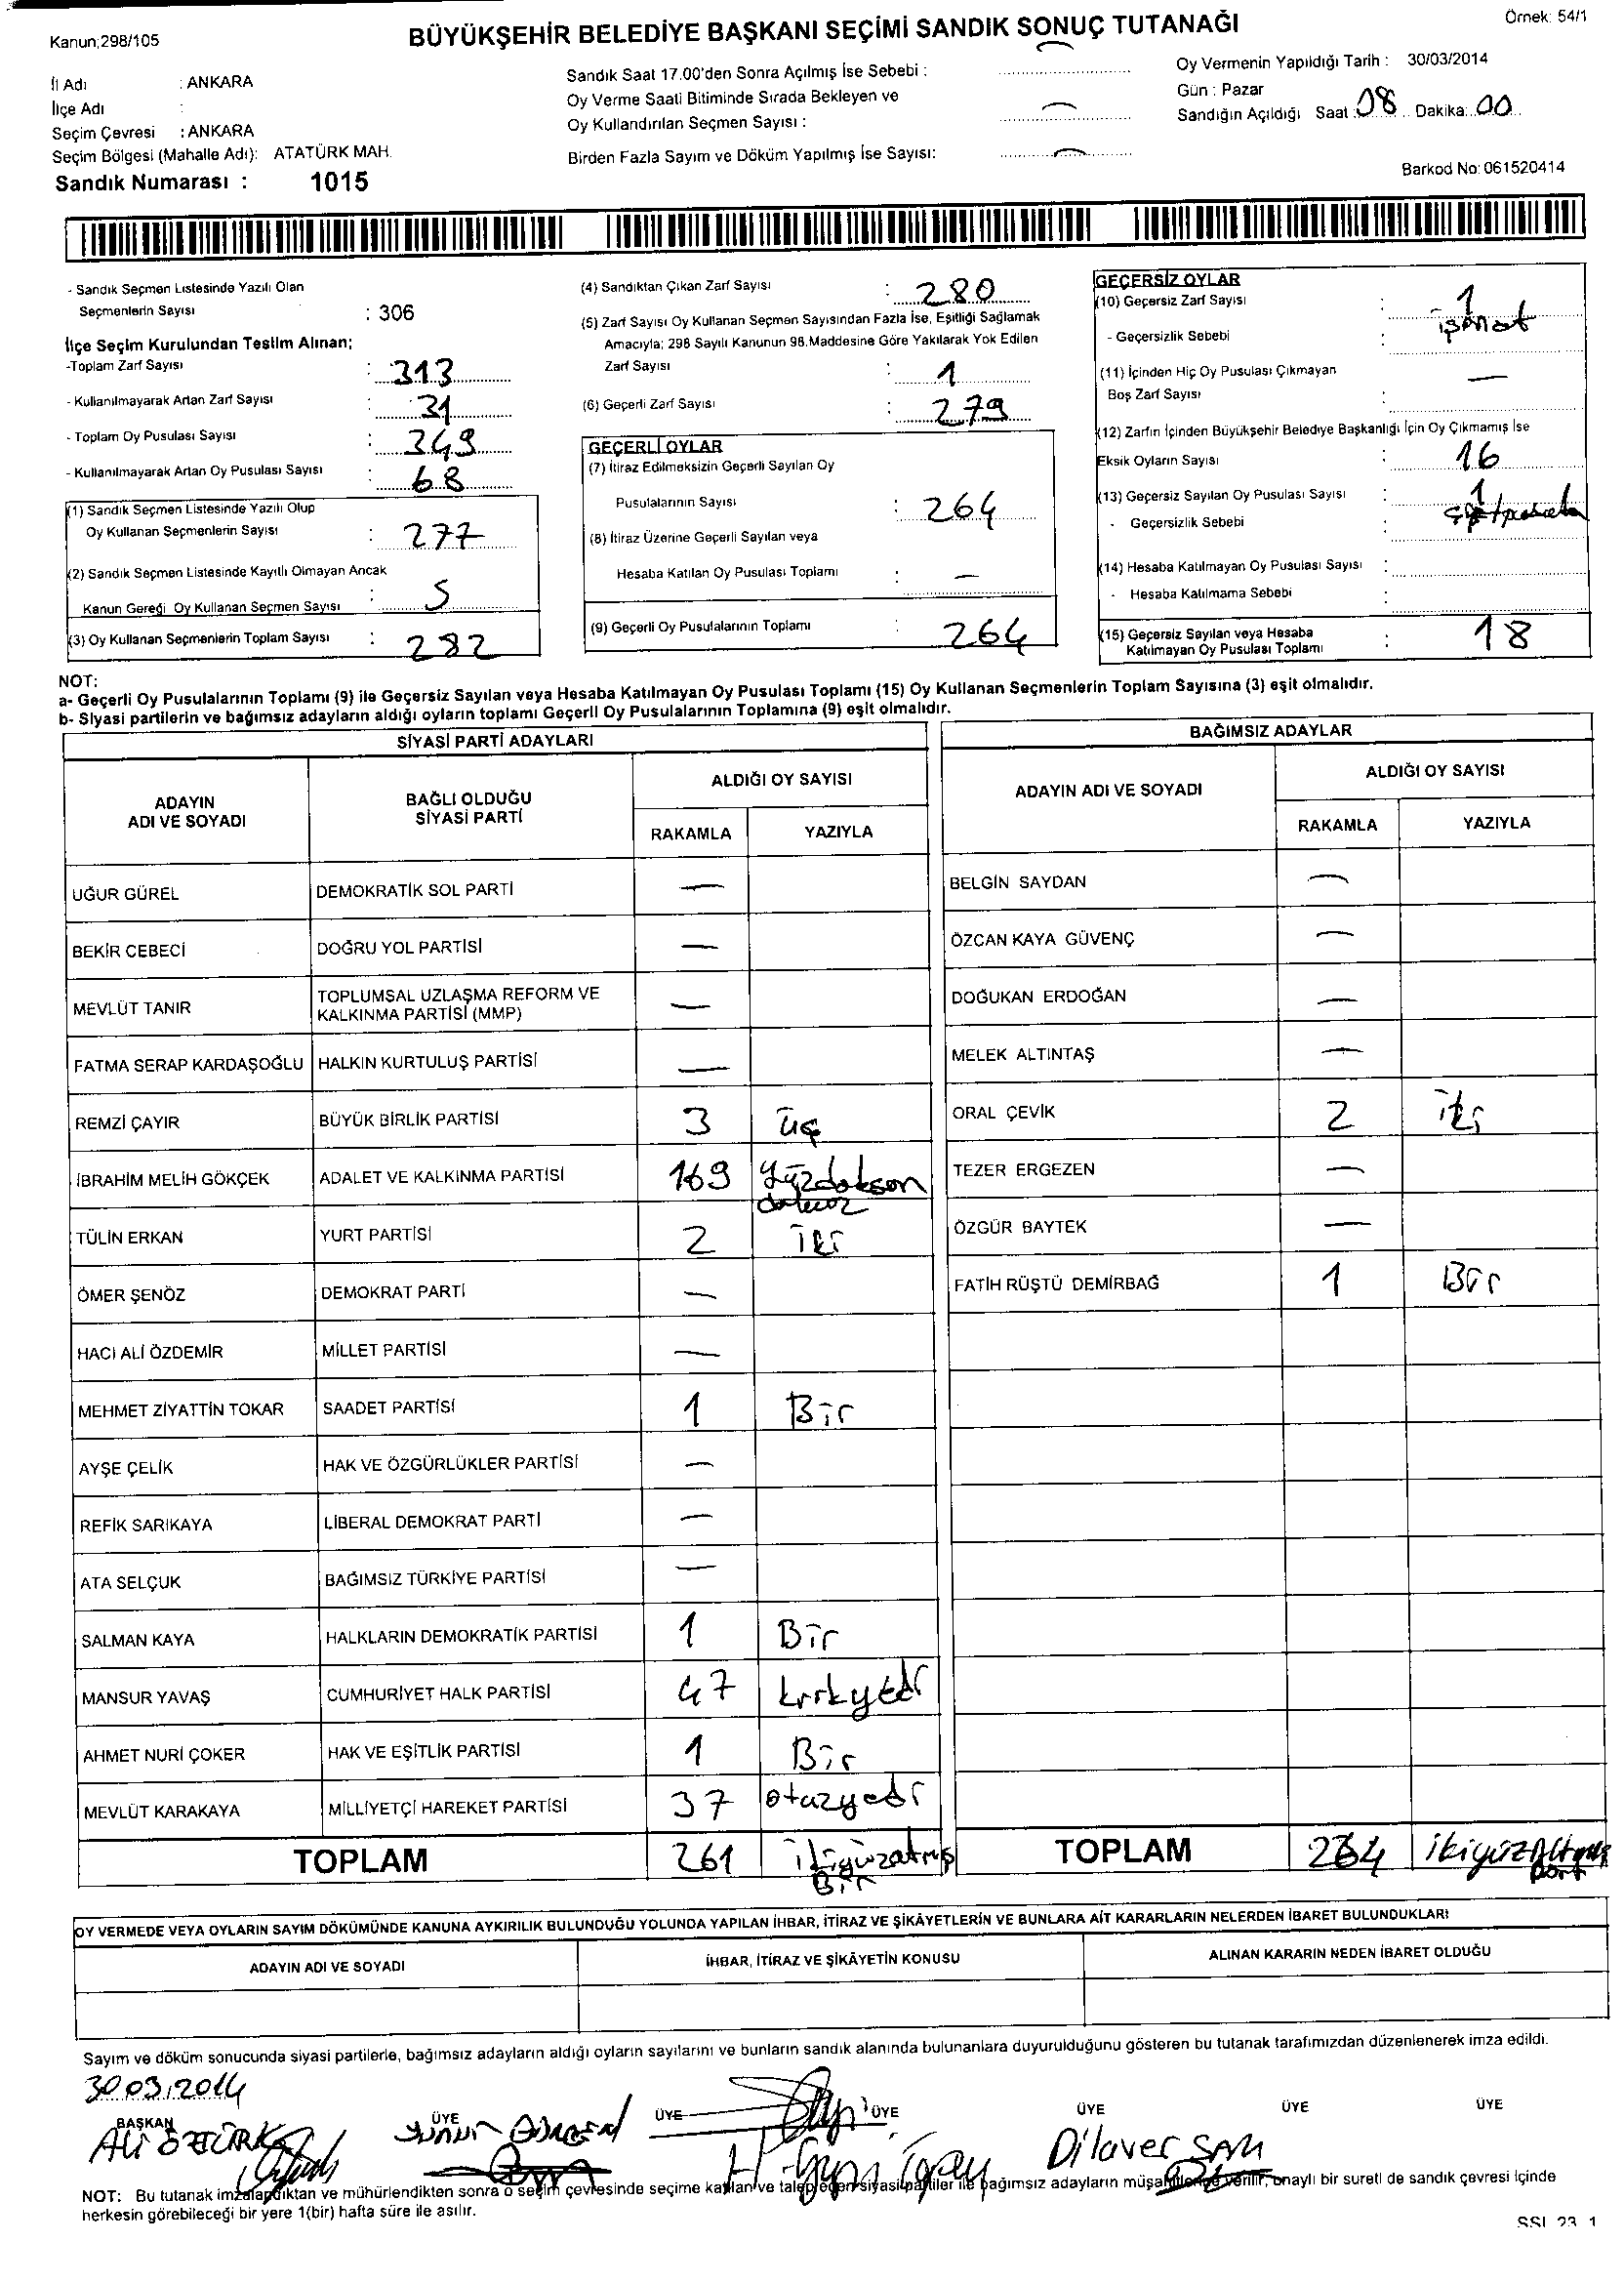 Kanun;298/105
BÜYÜKŞEHİR BELEDİYE BAŞKANI SEÇİMİ SANDIK SONUÇ TUTANAĞI
Örnek: 54/1
İl Adı : ANKARA
İlçe Adı :
Seçim Çevresi : ANKARA
Seçim Bölgesi (Mahalle Adı): ATATÜRK MAH.
Sandık Numarası : 1015
Sandık Saat 17.00'den Sonra Açılmış İse Sebebi :
Oy Verme Saati Bitiminde Sırada Bekleyen ve
Oy Kullandırılan Seçmen Sayısı :
Birden Fazla Sayım ve Döküm Yapılmış İse Sayısı:
Oy Vermenin Yapıldığı Tarih : 30/03/2014
Gün : Pazar
Sandığın Açıldığı Saat : 08 Dakika: 00
Barkod No: 061520414
- Sandık Seçmen Listesinde Yazılı Olan
Seçmenlerin Sayısı : 306
İlçe Seçim Kurulundan Teslim Alınan;
-Toplam Zarf Sayısı : 313
- Kullanılmayarak Artan Zarf Sayısı : 31
- Toplam Oy Pusulası Sayısı : 349
- Kullanılmayarak Artan Oy Pusulası Sayısı : 68
(1) Sandık Seçmen Listesinde Yazılı Olup
Oy Kullanan Seçmenlerin Sayısı : 277
(2) Sandık Seçmen Listesinde Kayıtlı Olmayan Ancak
Kanun Gereği Oy Kullanan Seçmen Sayısı : 5
(3) Oy Kullanan Seçmenlerin Toplam Sayısı : 282
(4) Sandıktan Çıkan Zarf Sayısı : 280
(5) Zarf Sayısı Oy Kullanan Seçmen Sayısından Fazla İse, Eşitliği Sağlamak
Amacıyla; 298 Sayılı Kanunun 98.Maddesine Göre Yakılarak Yok Edilen
Zarf Sayısı : 1
(6) Geçerli Zarf Sayısı : 279
GEÇERLİ OYLAR
(7) İtiraz Edilmeksizin Geçerli Sayılan Oy
Pusulalarının Sayısı : 264
(8) İtiraz Üzerine Geçerli Sayılan veya
Hesaba Katılan Oy Pusulası Toplamı : —
(9) Geçerli Oy Pusulalarının Toplamı : 264
GEÇERSİZ OYLAR
(10) Geçersiz Zarf Sayısı : 1
- Geçersizlik Sebebi :
(11) İçinden Hiç Oy Pusulası Çıkmayan
Boş Zarf Sayısı : —
(12) Zarfın İçinden Büyükşehir Belediye Başkanlığı İçin Oy Çıkmamış İse
Eksik Oyların Sayısı : 16
(13) Geçersiz Sayılan Oy Pusulası Sayısı : 1
- Geçersizlik Sebebi :
(14) Hesaba Katılmayan Oy Pusulası Sayısı :
- Hesaba Katılmama Sebebi :
(15) Geçersiz Sayılan veya Hesaba
Katılmayan Oy Pusulası Toplamı : 18
NOT:
a- Geçerli Oy Pusulalarının Toplamı (9) ile Geçersiz Sayılan veya Hesaba Katılmayan Oy Pusulası Toplamı (15) Oy Kullanan Seçmenlerin Toplam Sayısına (3) eşit olmalıdır.
b- Siyasi partilerin ve bağımsız adayların aldığı oyların toplamı Geçerli Oy Pusulalarının Toplamına (9) eşit olmalıdır.
SİYASİ PARTİ ADAYLARI
ADAYIN ADI VE SOYADI
BAĞLI OLDUĞU SİYASİ PARTİ
ALDIĞI OY SAYISI
RAKAMLA YAZIYLA
UĞUR GÜREL DEMOKRATİK SOL PARTİ —
BEKİR CEBECİ DOĞRU YOL PARTİSİ —
MEVLÜT TANIR TOPLUMSAL UZLAŞMA REFORM VE KALKINMA PARTİSİ (MMP) —
FATMA SERAP KARDAŞOĞLU HALKIN KURTULUŞ PARTİSİ —
REMZİ ÇAYIR BÜYÜK BİRLİK PARTİSİ 3 üç
İBRAHİM MELİH GÖKÇEK ADALET VE KALKINMA PARTİSİ 169
TÜLİN ERKAN YURT PARTİSİ 2 İki
ÖMER ŞENÖZ DEMOKRAT PARTİ —
HACI ALİ ÖZDEMİR MİLLET PARTİSİ —
MEHMET ZİYATTİN TOKAR SAADET PARTİSİ 1 Bir
AYŞE ÇELİK HAK VE ÖZGÜRLÜKLER PARTİSİ —
REFİK SARIKAYA LİBERAL DEMOKRAT PARTİ —
ATA SELÇUK BAĞIMSIZ TÜRKİYE PARTİSİ —
SALMAN KAYA HALKLARIN DEMOKRATİK PARTİSİ 1 Bir
MANSUR YAVAŞ CUMHURİYET HALK PARTİSİ 47 kırkyedi
AHMET NURİ ÇOKER HAK VE EŞİTLİK PARTİSİ 1 Bir
MEVLÜT KARAKAYA MİLLİYETÇİ HAREKET PARTİSİ 37 otuzyedi
TOPLAM 261 ikiyüzatmış Bir
BAĞIMSIZ ADAYLAR
ADAYIN ADI VE SOYADI
ALDIĞI OY SAYISI
RAKAMLA YAZIYLA
BELGİN SAYDAN —
ÖZCAN KAYA GÜVENÇ —
DOĞUKAN ERDOĞAN —
MELEK ALTINTAŞ —
ORAL ÇEVİK 2 iki
TEZER ERGEZEN —
ÖZGÜR BAYTEK —
FATİH RÜŞTÜ DEMİRBAĞ 1 Bir
TOPLAM 264
OY VERMEDE VEYA OYLARIN SAYIM DÖKÜMÜNDE KANUNA AYKIRILIK BULUNDUĞU YOLUNDA YAPILAN İHBAR, İTİRAZ VE ŞİKÂYETLERİN VE BUNLARA AİT KARARLARIN NELERDEN İBARET BULUNDUKLARI
ADAYIN ADI VE SOYADI
İHBAR, İTİRAZ VE ŞİKÂYETİN KONUSU
ALINAN KARARIN NEDEN İBARET OLDUĞU
Sayım ve döküm sonucunda siyasi partilerle, bağımsız adayların aldığı oyların sayılarını ve bunların sandık alanında bulunanlara duyurulduğunu gösteren bu tutanak tarafımızdan düzenlenerek imza edildi.
30.03.2014
BAŞKAN ÜYE ÜYE ÜYE ÜYE ÜYE ÜYE
ALİ ÖZTÜRK
Dilaver SARI
NOT: Bu tutanak imzalandıktan ve mühürlendikten sonra o seçim çevresinde seçime katılan ve talep eden siyasi partiler ile bağımsız adayların müşahitlerine verilir, onaylı bir sureti de sandık çevresi içinde
herkesin görebileceği bir yere 1(bir) hafta süre ile asılır.